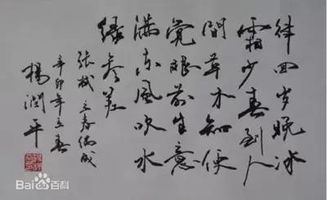 律回岁晚冰
霜少春到人
间草木知便
觉眼前生意
满东风吹水
绿参差
张栻立春偶成
辛卯年立春
楊润平
Bai百科